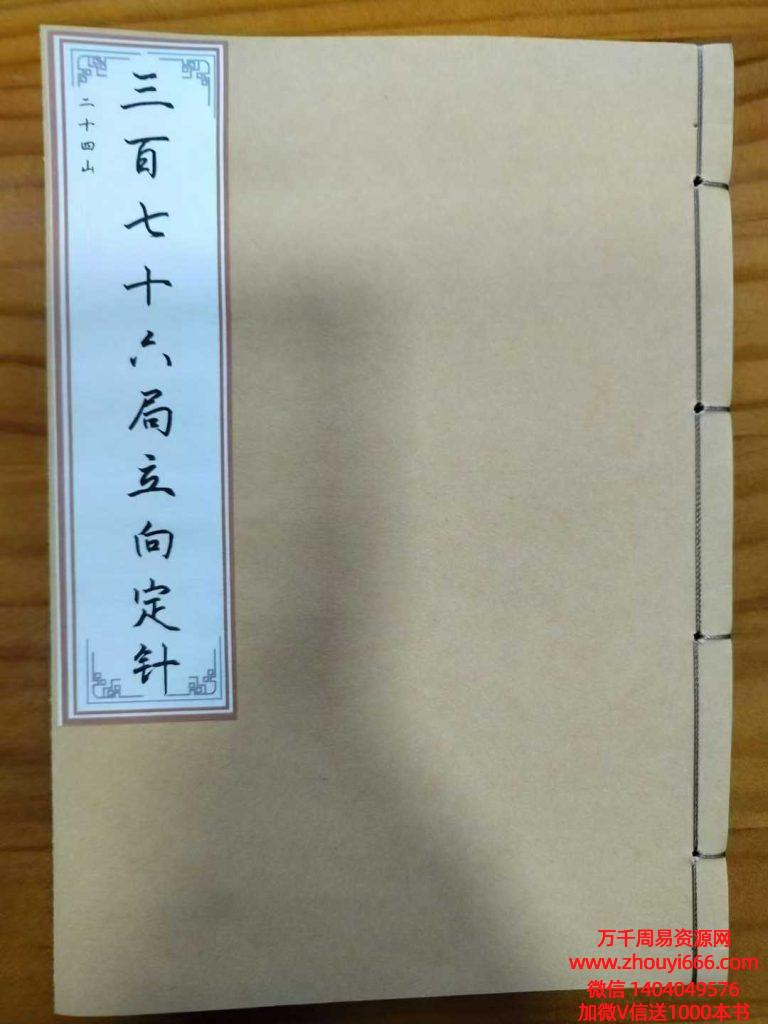 二十四山
三百七十六局立向定针
万千周易资源网
www.zhouyi666.com
微信 1404049576
加微V信送1000本书